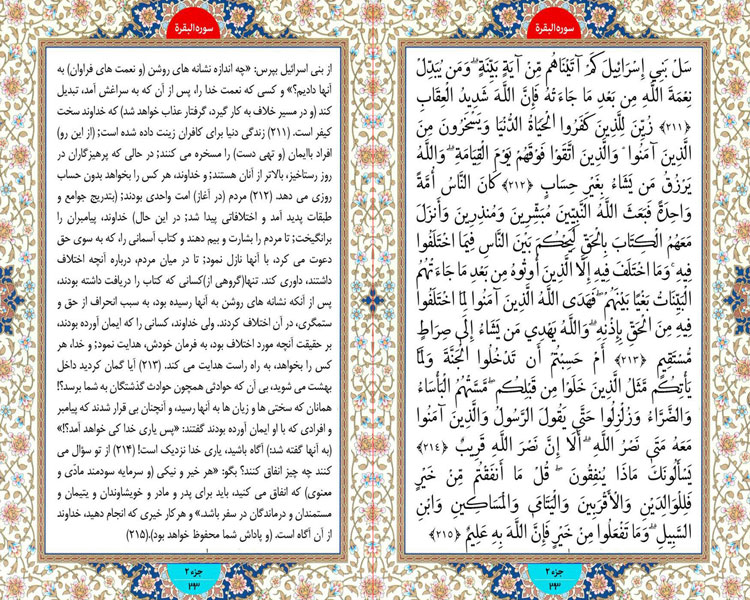 سوره البقرة
سَلْ بَنِي إِسْرَائِيلَ كَمْ آتَيْنَاهُم مِّنْ آيَةٍ بَيِّنَةٍ ۗ وَمَن يُبَدِّلْ
نِعْمَةَ اللَّهِ مِن بَعْدِ مَا جَاءَتْهُ فَإِنَّ اللَّهَ شَدِيدُ الْعِقَابِ
﴿۲۱۱﴾ زُيِّنَ لِلَّذِينَ كَفَرُوا الْحَيَاةُ الدُّنْيَا وَيَسْخَرُونَ مِنَ
الَّذِينَ آمَنُوا ۘ وَالَّذِينَ اتَّقَوْا فَوْقَهُمْ يَوْمَ الْقِيَامَةِ ۗ وَاللَّهُ
يَرْزُقُ مَن يَشَاءُ بِغَيْرِ حِسَابٍ ﴿۲۱۲﴾ كَانَ النَّاسُ أُمَّةً
وَاحِدَةً فَبَعَثَ اللَّهُ النَّبِيِّينَ مُبَشِّرِينَ وَمُنذِرِينَ وَأَنزَلَ
مَعَهُمُ الْكِتَابَ بِالْحَقِّ لِيَحْكُمَ بَيْنَ النَّاسِ فِيمَا اخْتَلَفُوا
فِيهِ ۚ وَمَا اخْتَلَفَ فِيهِ إِلَّا الَّذِينَ أُوتُوهُ مِن بَعْدِ مَا جَاءَتْهُمُ
الْبَيِّنَاتُ بَغْيًا بَيْنَهُمْ ۖ فَهَدَى اللَّهُ الَّذِينَ آمَنُوا لِمَا اخْتَلَفُوا
فِيهِ مِنَ الْحَقِّ بِإِذْنِهِ ۗ وَاللَّهُ يَهْدِي مَن يَشَاءُ إِلَى صِرَاطٍ
مُّسْتَقِيمٍ ﴿۲۱۳﴾ أَمْ حَسِبْتُمْ أَن تَدْخُلُوا الْجَنَّةَ وَلَمَّا
يَأْتِكُم مَّثَلُ الَّذِينَ خَلَوْا مِن قَبْلِكُم ۖ مَّسَّتْهُمُ الْبَأْسَاءُ
وَالضَّرَّاءُ وَزُلْزِلُوا حَتَّى يَقُولَ الرَّسُولُ وَالَّذِينَ آمَنُوا
مَعَهُ مَتَى نَصْرُ اللَّهِ ۗ أَلَا إِنَّ نَصْرَ اللَّهِ قَرِيبٌ ﴿۲۱۴﴾
يَسْأَلُونَكَ مَاذَا يُنفِقُونَ ۖ قُلْ مَا أَنفَقْتُم مِّنْ خَيْرٍ
فَلِلْوَالِدَيْنِ وَالْأَقْرَبِينَ وَالْيَتَامَى وَالْمَسَاكِينِ وَابْنِ
السَّبِيلِ ۗ وَمَا تَفْعَلُوا مِنْ خَيْرٍ فَإِنَّ اللَّهَ بِهِ عَلِيمٌ ﴿۲۱۵﴾
جزء ۲
۳۳
سوره البقرة
از بنی اسرائیل بپرس: «چه اندازه نشانه های روشن (و نعمت های فراوان) به
آنها دادیم؟» و کسی که نعمت خدا را، پس از آن که به سراغش آمد، تبدیل
کند (و در مسیر خلاف به کار گیرد، گرفتار عذاب خواهد شد) که خداوند سخت
کیفر است. (۲۱۱) زندگی دنیا برای کافران زینت داده شده است; (از این رو)
افراد باایمان (و تهی دست) را مسخره می کنند; در حالی که پرهیزگاران در
روز رستاخیز، بالاتر از آنان هستند; و خداوند، هر کس را بخواهد بدون حساب
روزی می دهد. (۲۱۲) مردم (در آغاز) امت واحدی بودند; (بتدریج جوامع و
طبقات پدید آمد و اختلافاتی پیدا شد; در این حال) خداوند، پیامبران را
برانگیخت; تا مردم را بشارت و بیم دهند و کتاب آسمانی را، که به سوی حق
دعوت می کرد، با آنها نازل نمود; تا در میان مردم، درباره آنچه اختلاف
داشتند، داوری کند. تنها(گروهی از)کسانی که کتاب را دریافت داشته بودند،
پس از آنکه نشانه های روشن به آنها رسیده بود، به سبب انحراف از حق و
ستمگری، در آن اختلاف کردند. ولی خداوند، کسانی را که ایمان آورده بودند،
بر حقیقت آنچه مورد اختلاف بود، به فرمان خودش، هدایت نمود; و خدا، هر
کس را بخواهد، به راه راست هدایت می کند. (۲۱۳) آیا گمان کردید داخل
بهشت می شوید، بی آن که حوادثی همچون حوادث گذشتگان به شما برسد؟!
همانان که سختی ها و زیان ها به آنها رسید، و آنچنان بی قرار شدند که پیامبر
و افرادی که با او ایمان آورده بودند گفتند: «پس یاری خدا کی خواهد آمد؟!»
(به آنها گفته شد:) آگاه باشید، یاری خدا نزدیک است! (۲۱۴) از تو سؤال می
کنند چه چیز انفاق کنند؟ بگو: «هر خیر و نیکی (و سرمایه سودمند مادّی و
معنوی) که انفاق می کنید، باید برای پدر و مادر و خویشاوندان و یتیمان و
مستمندان و درماندگان در سفر باشد.» و هر کار خیری که انجام دهید، خداوند
از آن آگاه است. (و پاداش شما محفوظ خواهد بود).(۲۱۵)
جزء ۲
۳۳